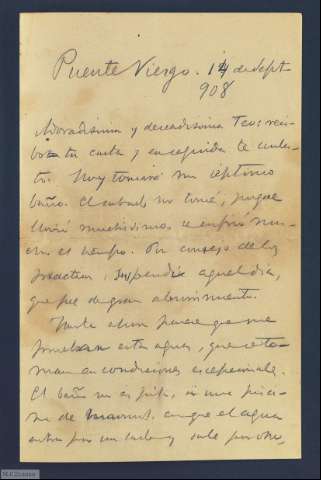 Puente Viesgo. 14 de Sept
908
Adoradísima y deseadísima Teo: reci-
bo tu carta y enseguida te contes-
to. Hoy tomaré mi séptimo
baño. El sábado no tomé, porque
llovió muchísimo, y enfrió mu-
cho el tiempo. Por consejo de los
prácticos, suspendí aquel día,
que fué de gran aburrimiento.
Hasta ahora parece que me
prueban estas aguas, que se to-
man en condiciones excepcionales.
El baño no es pila, es una pisci-
na de aunque el agua
entra por un lado y sale por otro,